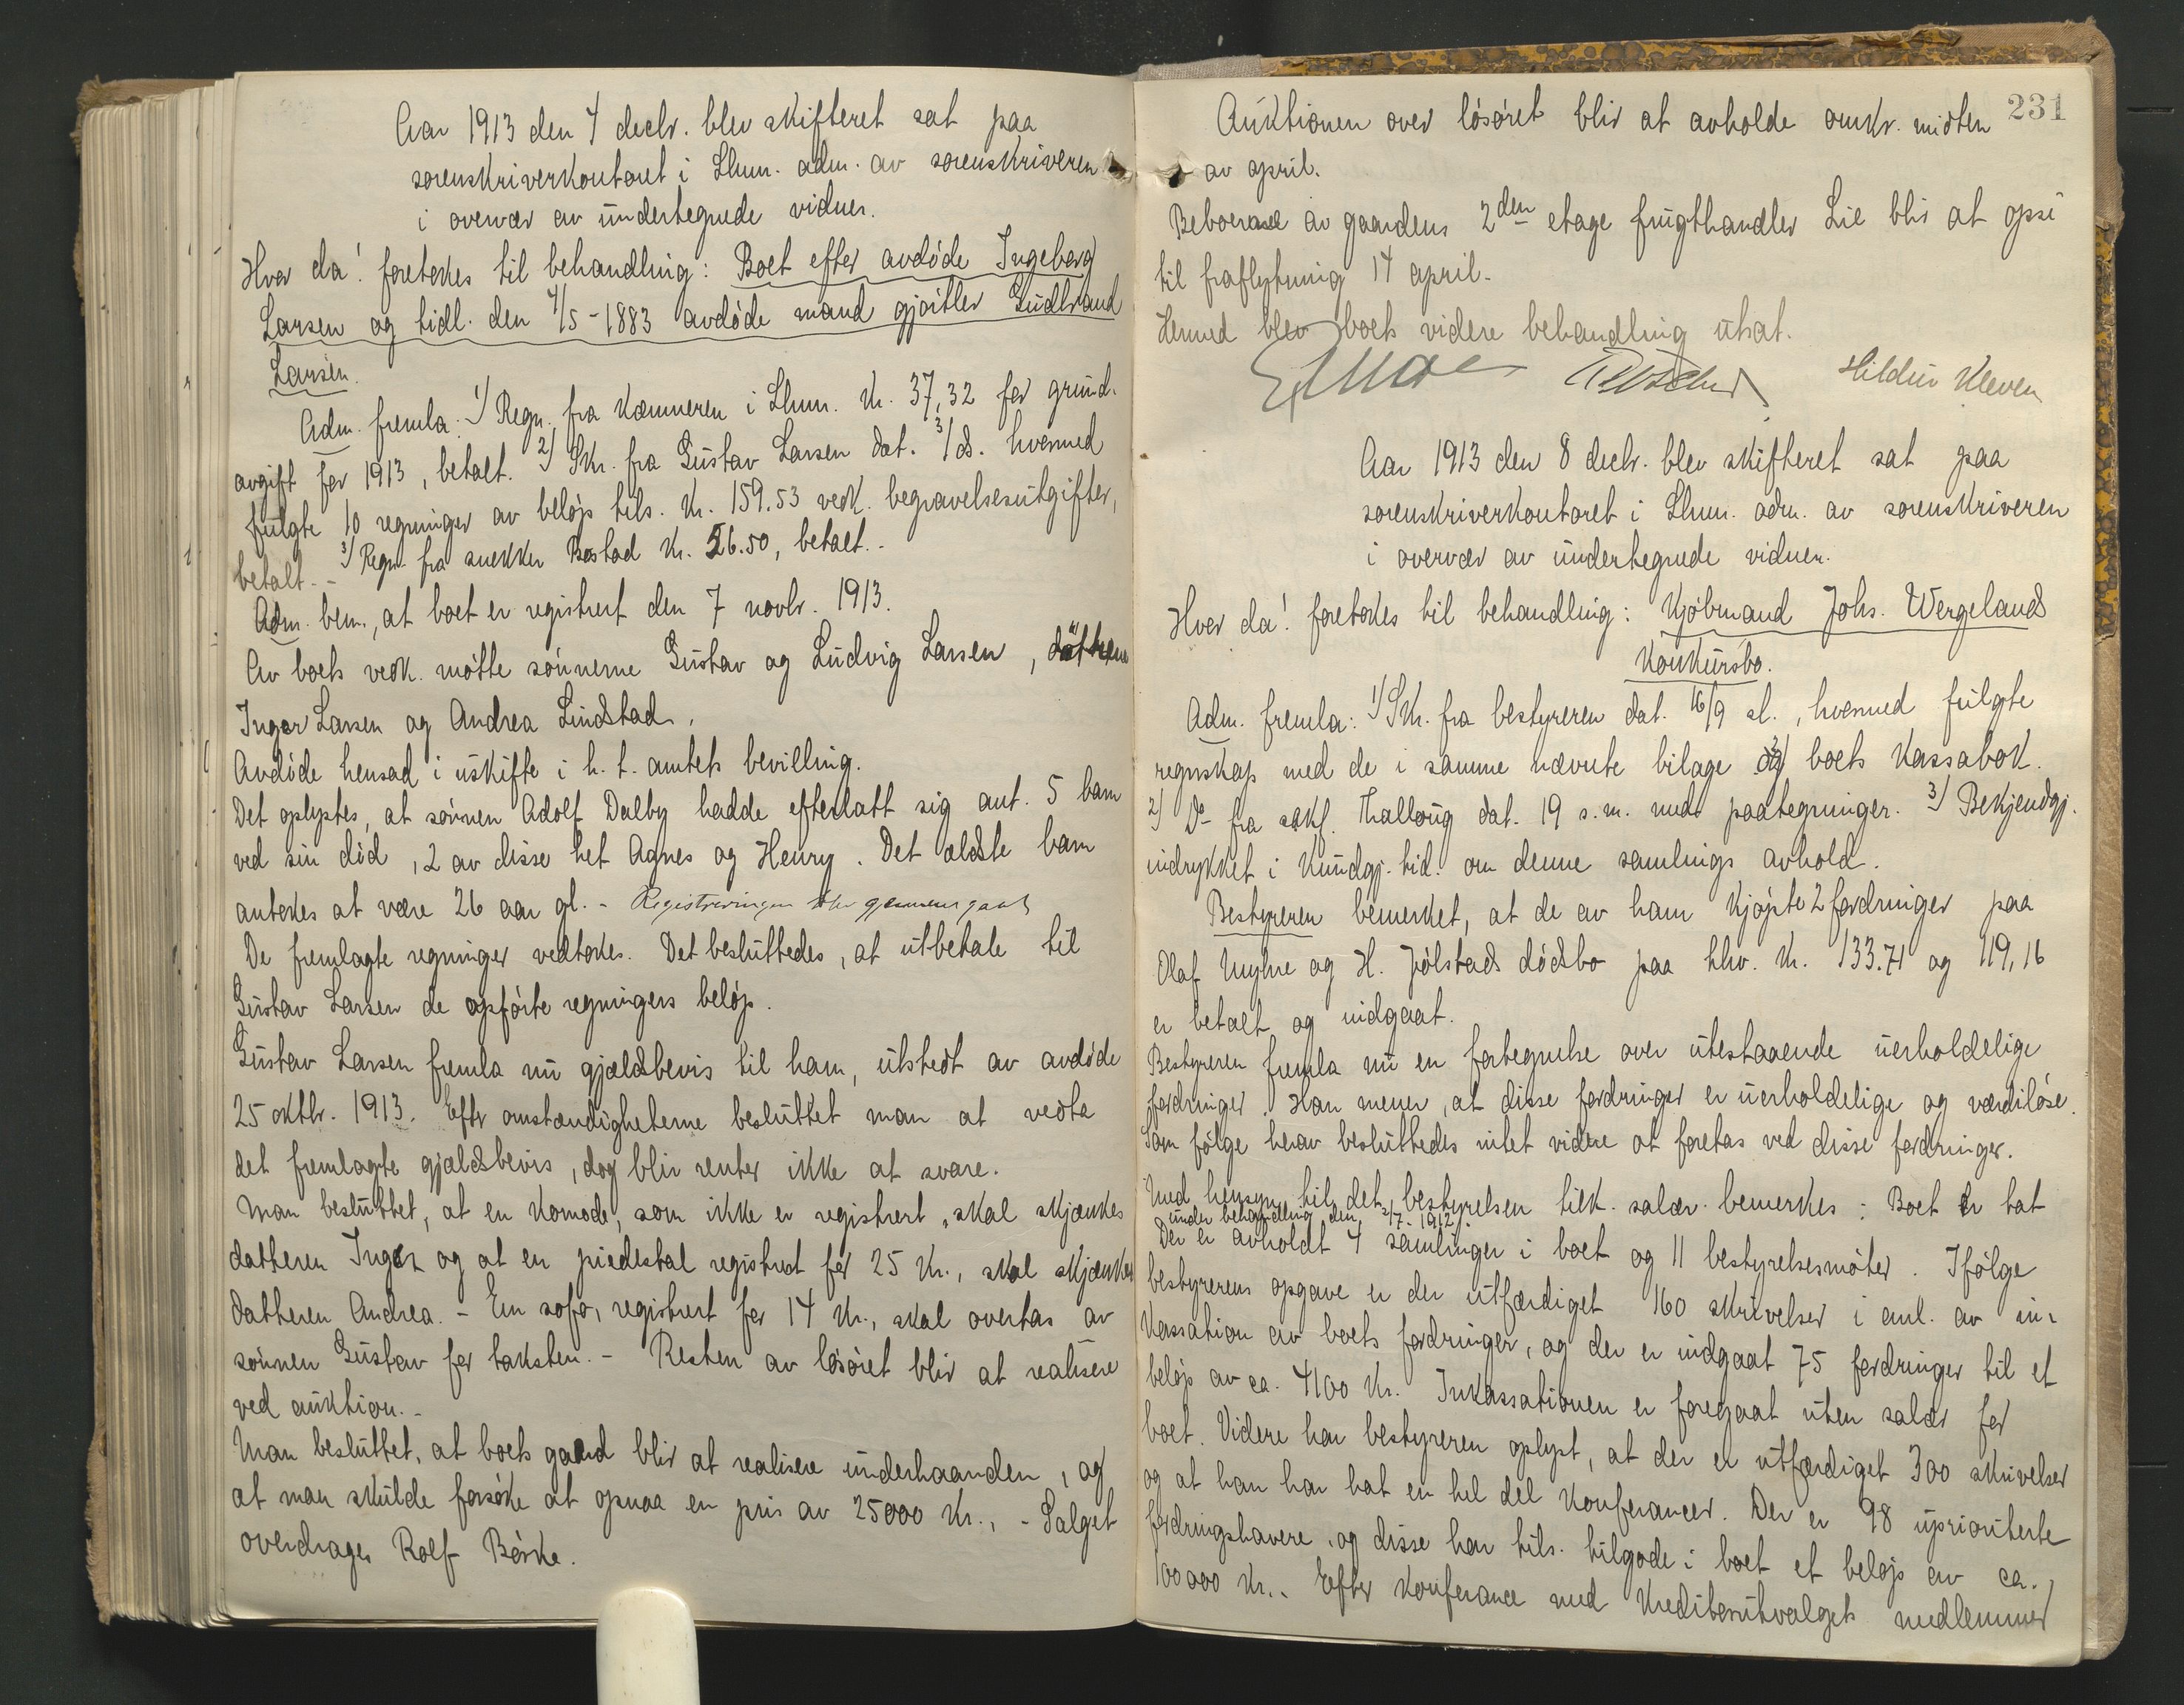 Aar 1913 den 4 decbr. blev skifteret sat paa
sorenskriverkontoret i Lhmr. adm. av sorenskriveren
i overvær av undertegnede vidner.
Hvor da! foretokes til behandling: Boet efter avdøde Ingeborg
Larsen og tidl. den 4/5-1883 avdøde mand gjørtler Gudbrand
Larsen.
Adm. fremla: 1) Regn. fra kæmneren i Lhmr. Kr. 37,32 for grund-
avgift for 1913, betalt. 2) Skr. fra Gustav Larsen dat. 3/ds. hvormed
fulgte 10 regninger av beløp tils. Kr. 159.53 vedk. begravelsesutgifter,
betalt. - 3) Regn. fra snekker Bostad Kr. 56.50, betalt. -
Adm. bem., at boet er registrert den 7 novbr. 1913.
Av boets vedk. møtte sønnerne Gustav og Ludvig Larsen, døttrene
Inger Larsen og Andrea Lindstad.
Avdøde hensad i uskifte i h. t. amtets bevilling.
Det oplystes, at sønnen Adolf Dalby hadde efterlatt sig ant. 5 barn
ved sin død, 2 av disse het Agnes og Henry. Det ældste barn
antokes at være 26 aar gl. - Registreringen blev gjennemgaat
De fremlagte regninger vedtokes. Det besluttedes, at utbetale til
Gustav Larsen de opførte regningers beløp.
Gustav Larsen fremla nu gjældsbevis til ham, utstedt av avdøde
25 oktbr. 1913. Efter omstændigheterne besluttet man at vedta
det fremlagte gjældsbevis, dog blir renter ikke at svare.
Man besluttet, at en komode, som ikke er registrert, skal skjænkes
datteren Inger og at en piedestal registrert for 25 Kr., skal skjænkes
datteren Andrea. - En sofa, registrert for 14 Kr., skal overtas av
sønnen Gustav for taksten. - Resten av løsøret blir at realisere
ved auktion. -
Man besluttet, at boets gaard blir at realisere underhaanden, og
at man skulde forsøke at opnaa en pris av 25000 Kr., - Salget
overdrages Rolf Børke.
231
Auktionen over løsøret blir at avholde omkr. midten
av april.
Beboerne av gaardens 2den etage frugthandler Lie blir at opsi
til fraflytning 14 april.
Hermed blev boets videre behandling utsat.
Hildur Kleven
Aar 1913 den 8 decbr. blev skifteret sat paa
sorenskriverkontoret i Lhmr. adm. av sorenskriveren
i overvær av undertegnede vidner.
Hvor da! foretokes til behandling: Kjøbmand Johs. Wergelands
konkursbo.
Adm. fremla: 1) Skr. fra bestyreren dat. 16/9 sl., hvormed fulgte
regnskap med de i samme nævnte bilage og boets kassabok.
2) Do fra sakf. Thallaug dat. 19 s.m. med paategninger. 3) Bekjendtgj.
indrykket i Kundgj. tid. om denne samlings avhold.
Bestyreren bemerket, at de av ham kjøpte 2 fordringer paa
Olaf Myhre og H. Jølstads dødsbo paa hhv. Kr. 133.71 og 119,16
er betalt og indgaat.
Bestyreren fremla nu en fortegnelse over utestaaende uerholdelige
fordringer. Han mener, at disse fordringer er uerholdelige og værdiløse.
Som følge herav besluttedes intet videre at foretas ved disse fordringer.
Med hensyn til det bestyrelsen tilk. salær bemerkes: Boet er tat
under behandling den 2/7-1912.
Der er avholdt 4 samlinger i boet og 11 bestyrelsesmøter. Ifølge
bestyrerens opgave er der utfærdiget 160 skrivelser i anl. av in-
kassation av boets fordringer, og der er indgaat 75 fordringer til et
beløp av ca. 4100 Kr. Inkassationen er foregaat uten salær for
boet. Videre har bestyreren oplyst, at der er utfærdiget 300 skrivelser
og at han har hat en hel del konferancer. Der er 98 uprioriterte
fordringshavere, og disse har tils. tilgode i boet et beløp av ca.
100000 Kr. Efter konferance med kreditorutvalgets medlemmer